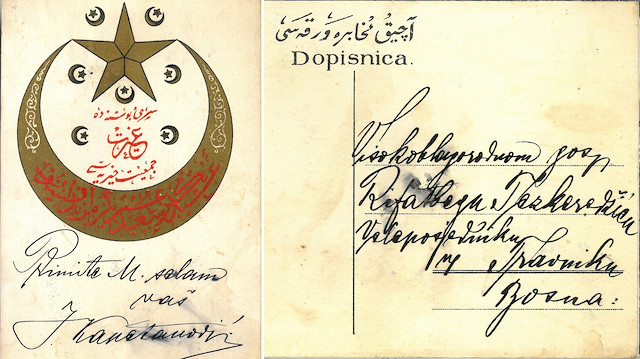 غيرت
جمعيت خيريه سی
Primite M. selam
vaš
J.
آچيق مخابره ورقه سی
Dopisnica.
Visokoblagorodnom gosp
Rifatbegu Tezkeredžiću
Veleposjedniku
u Travniku
Bosna: